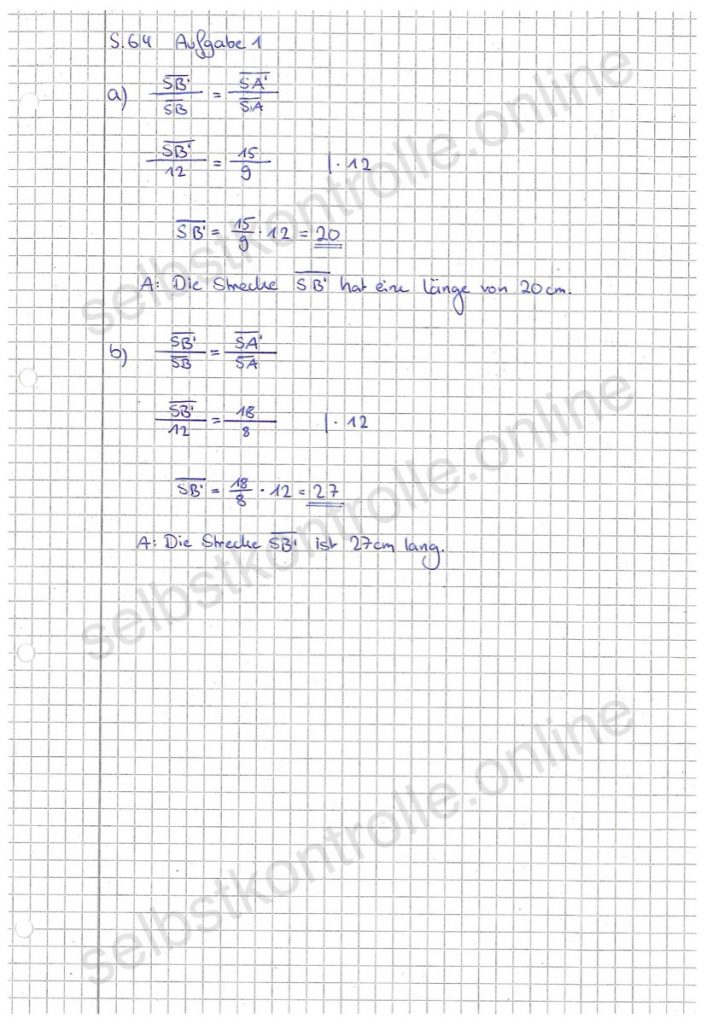 S.64 Aufgabe 1
a) SB'/SB = SA'/SA
SB'/12 = 15/9 | · 12
SB' = 15/9 · 12 = 20
A: Die Strecke SB' hat eine länge von 20cm.
b) SB'/SB = SA'/SA
SB'/12 = 18/8 | · 12
SB' = 18/8 · 12 = 27
A: Die Strecke SB' ist 27cm lang.
selbstkontrolle.online
selbstkontrolle.online
selbstkontrolle.online